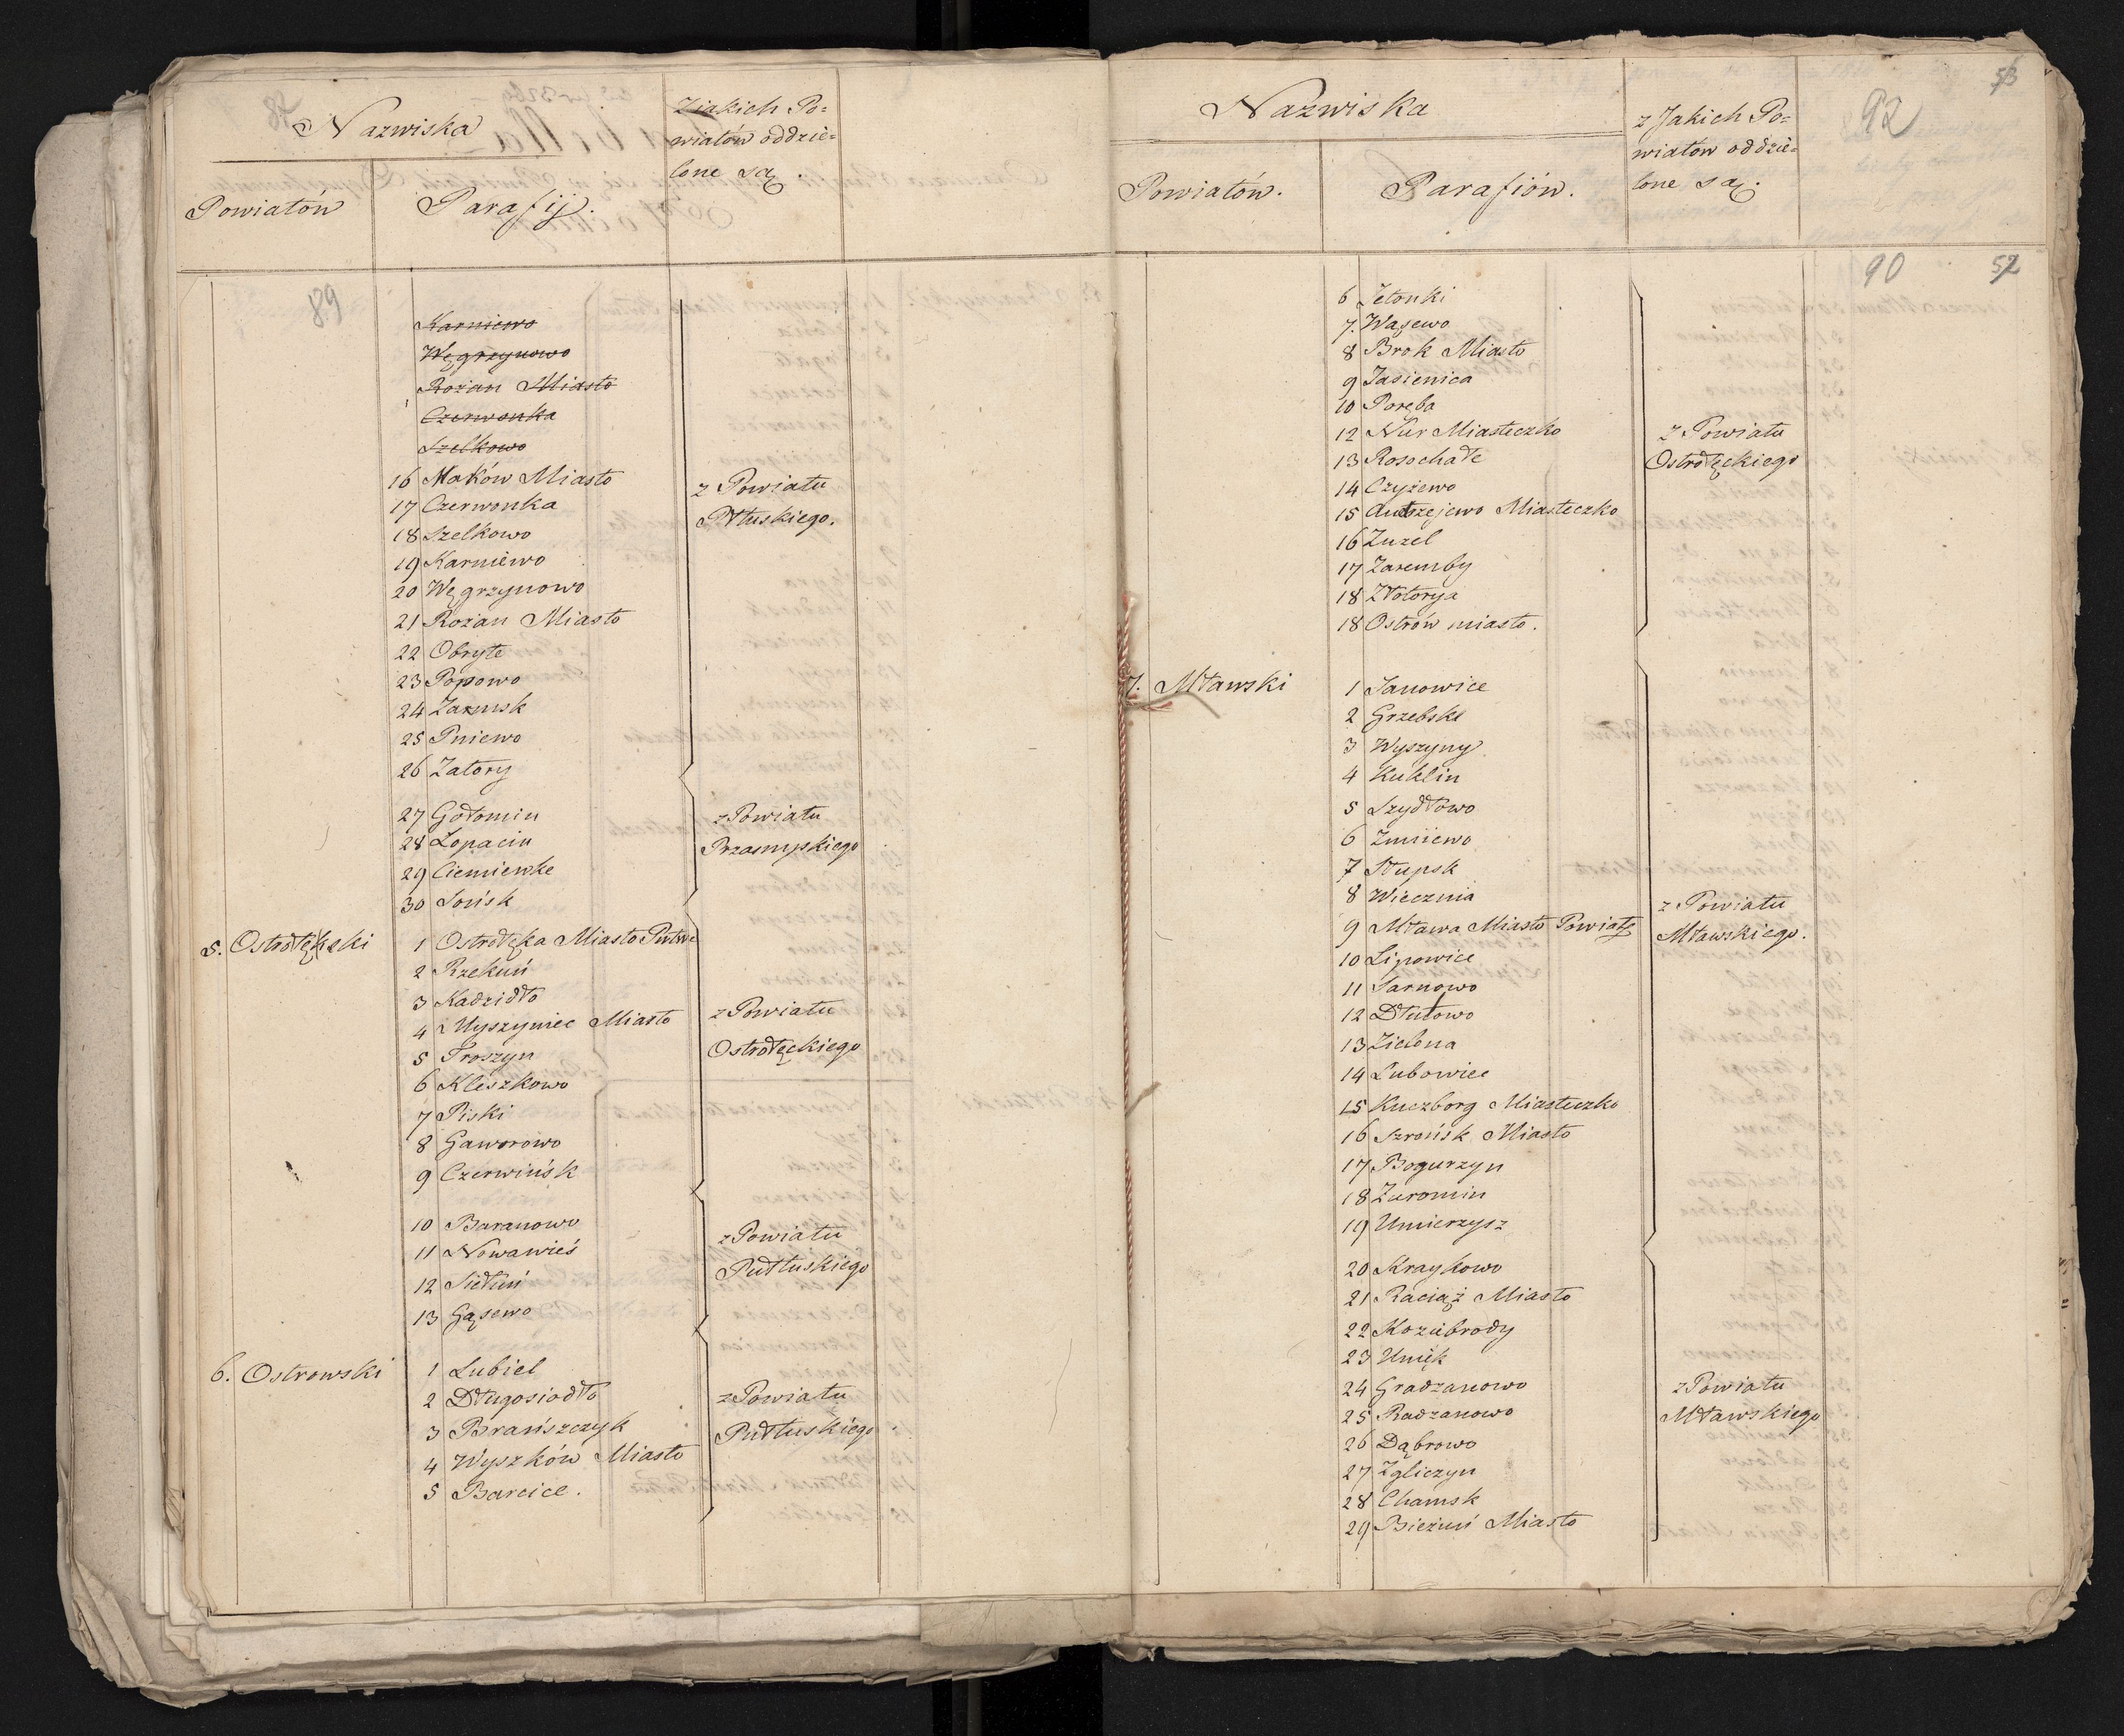 Nazwiska
Ziakich Po=
wiatów oddzie=
lone są.
Powiatów
Parafij.
89
Karniewo
Węgrzynowo
Rożan Miasto
Czerwonka
Szelkowo
16 Maków Miasto
17 Czerwonka
18 Szelkowo
19 Karniewo
20 Węgrzynowo
21 Rożan Miasto
22 Obryte
23 Popowo
24 Zambsk
25 Pniewo
26 Zatory
z Powiatu
Płtuskiego.
27 Gołomin
28 Łopacin
29 Ciemiewke
30 Sońsk
z Powiatu
Przasnyskiego
5. Ostrołęcki
1 Ostrołęka Miasto Powia
2 Rzekuń
3 Kadzidło
4 Myszyniec Miasto
5 Troszyn
6 Kleszkowo
7 Piski
8 Gaworowo
9 Czerwińsk
z Powiatu
Ostrołęckiego
10 Baranowo
11 Nowawieś
12 Sieluń
13 Gąsewo
z Powiatu
Pułtuskiego
6. Ostrowski
1 Lubiel
2 Długosiodło
3 Brańszczyk
4 Wyszków Miasto
5 Barcice.
z Powiatu
Pułtuskiego
53
92
Nazwiska
z Jakich Po=
wiatów oddzie=
lone są.
Powiatów.
Parafiów.
90
52
6 Jelonki
7. Wąsewo
8 Brok Miasto
9 Jasienica
10 Poręba
12 Nur Miasteczko
13 Rosochałe
14 Czyżewo
15 Andrzejewo Miasteczko
16 Zuzel
17 Zaremby
18 Złotorya
18 Ostrów miasto.
z Powiatu
Ostrołęckiego
7. Mławski
1 Janowice
2 Grzebski
3 Wyszyny
4 Kuklin
5 Szydłowo
6 Zmiiewo
7 Stupsk
8 Wiecznia
9 Mława Miasto Powiato
10 Lipowiec
11 Sarnowo
12 Dłutowo
13 Zielona
14 Lubowiec
15 Kuczborg Miasteczko
16 Szrońsk Miasto
17 Bogurzyn
18 Zuromin
19 Unierzysz
z Powiatu
Mławskiego.
20 Kraykowo
21 Raciąż Miasto
22 Kozubrody
23 Unięk
24 Gradzanowo
25 Radzanowo
26 Dąbrowo
27 Zgliczyn
28 Chamsk
29 Bieżuń Miasto
z Powiatu
Mławskiego